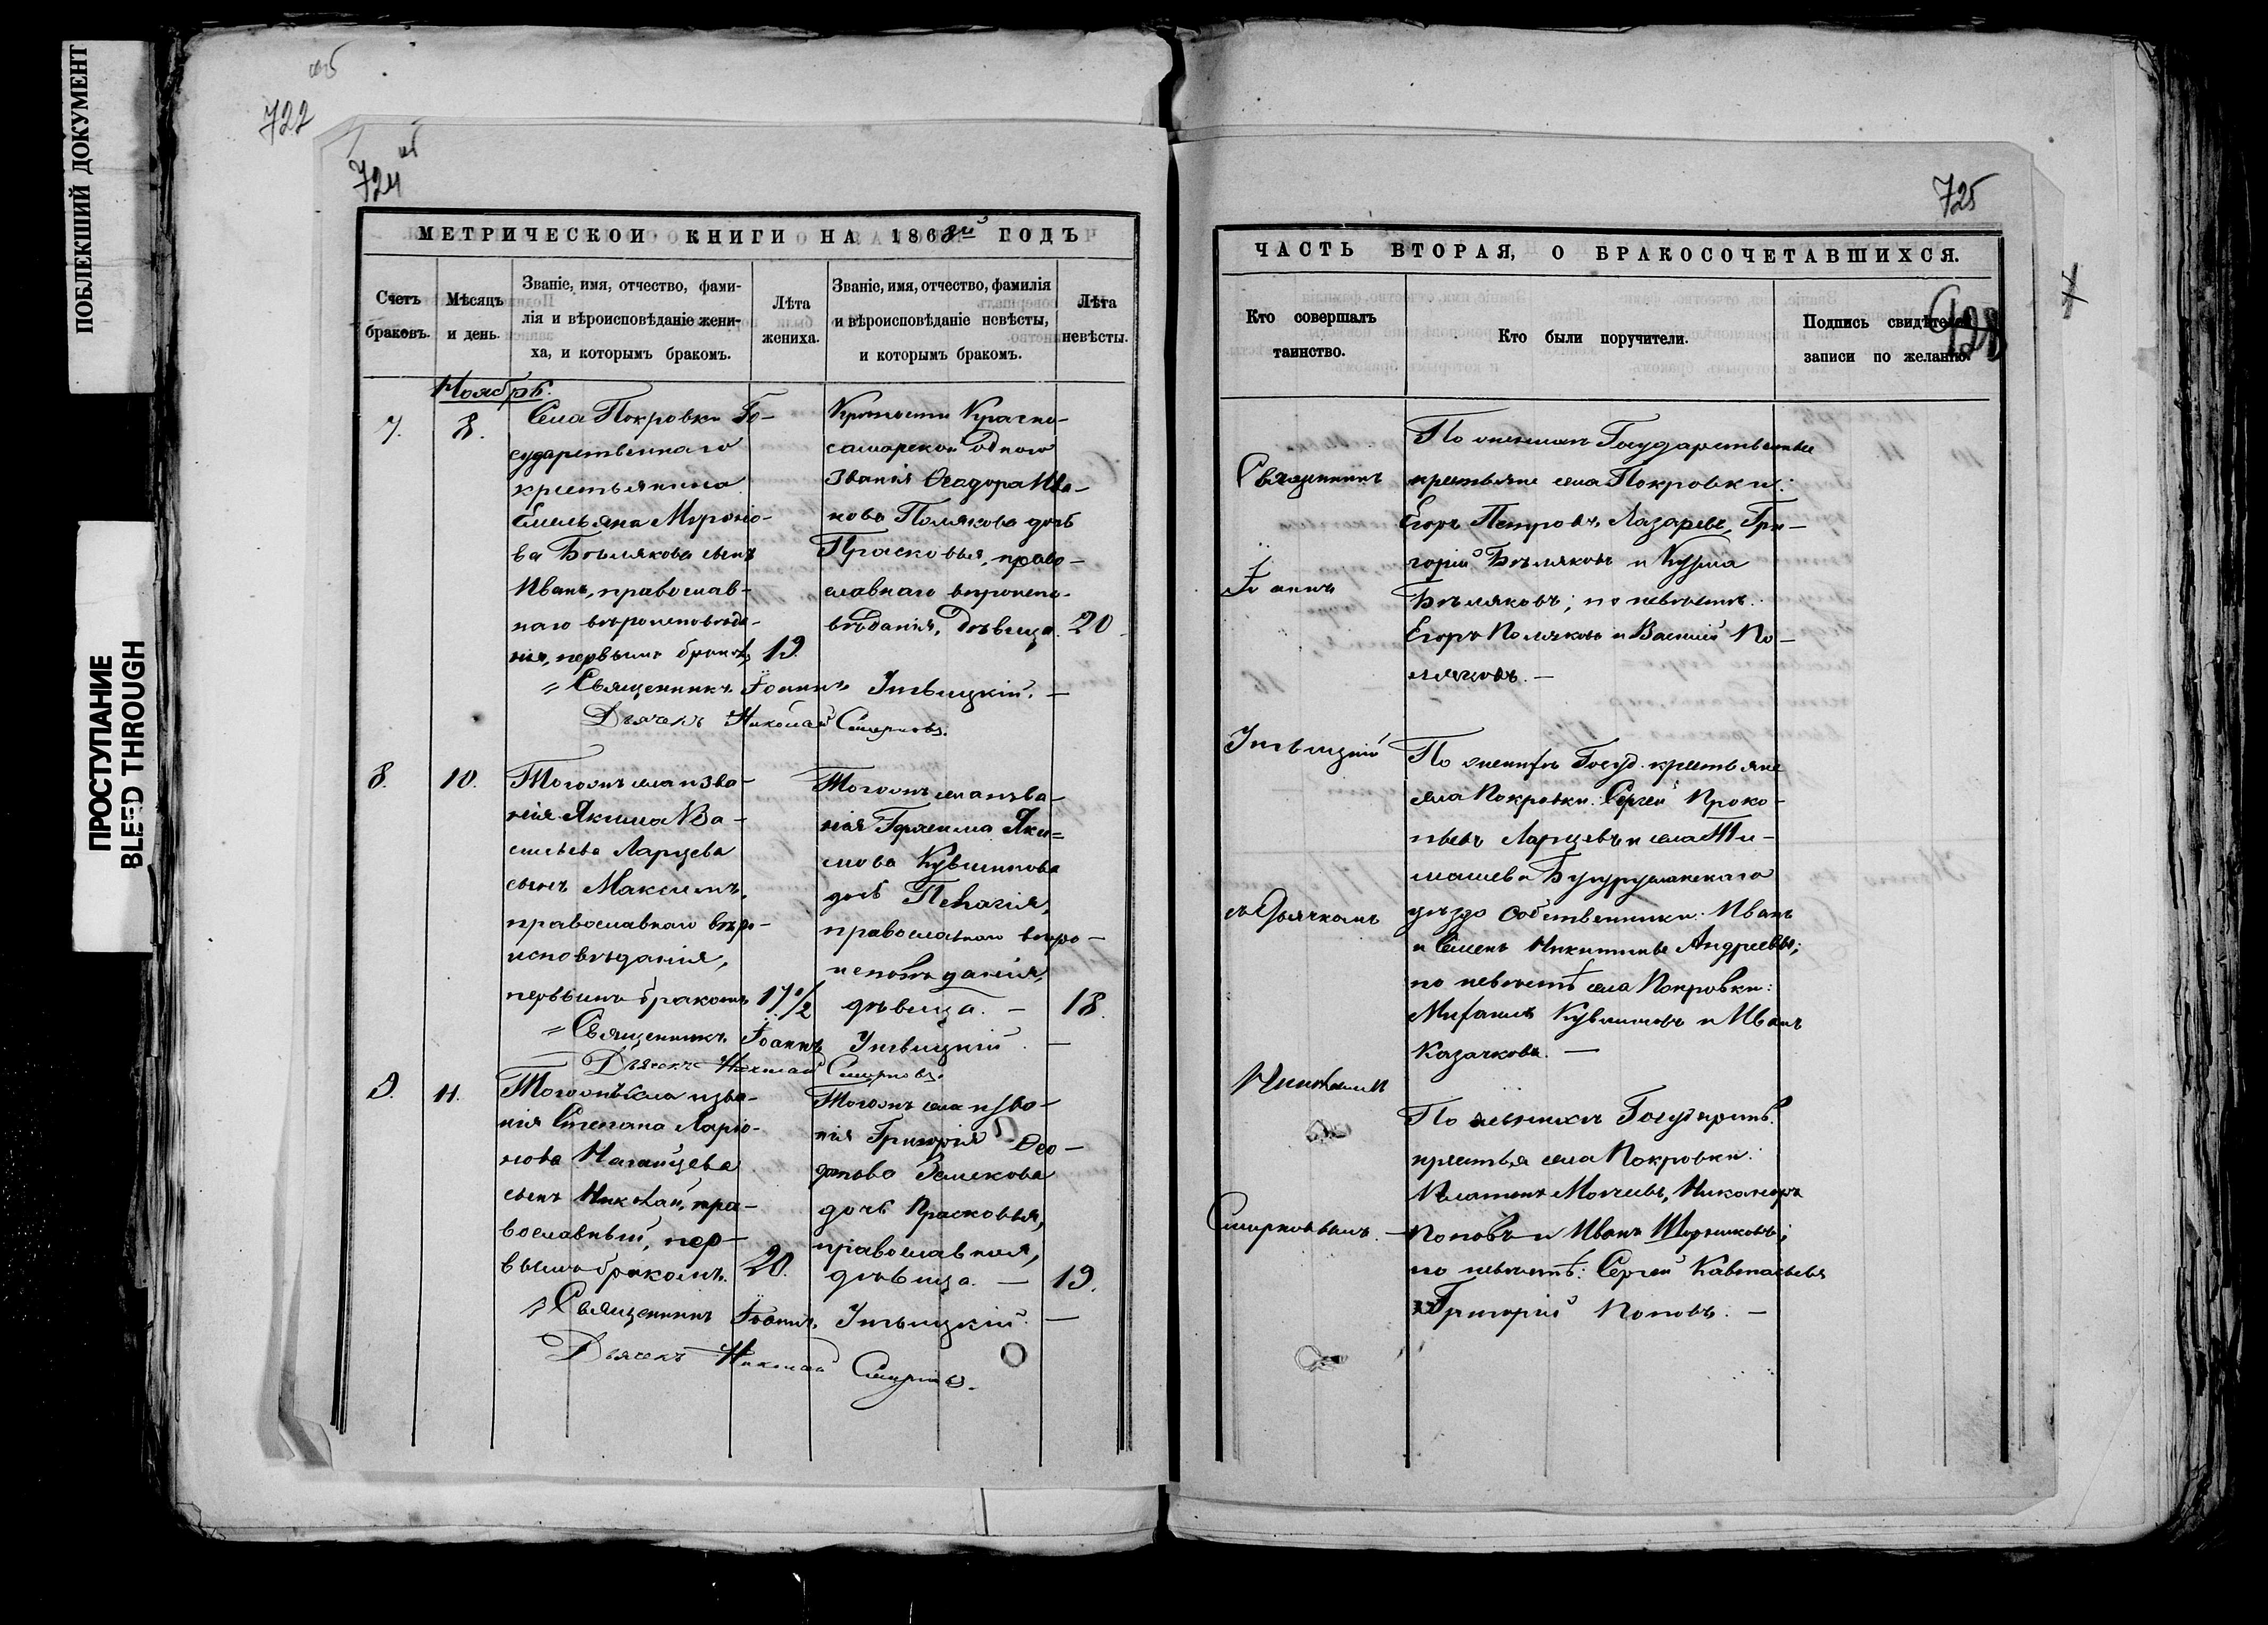 ПОБЛЕКШИЙ ДОКУМЕНТ
ПРОСТУПАНИЕ
BLEED THROUGH
722 об
724 об
МЕТРИЧЕСКОЙ КНИГИ НА 1868й ГОДЪ
Счетъ браковъ.
Мѣсяцъ и день.
Званіе, имя, отчество, фами-
лія и вѣроисповѣданіе жени-
ха, и которымъ бракомъ.
Лѣта
жениха.
Званіе, имя, отчество, фамилія
и вѣроисповѣданіе невѣсты,
и которымъ бракомъ.
Лѣта
невѣсты.
Ноябрь.
7.
8.
Села Покровки Го-
сударственнаго
крестьянина
Емельяна Мироно-
ва Бѣлякова сынъ
Иванъ, православ-
наго вѣроисповѣда-
нія, первымъ бракомъ,
19.
Крѣпости Красно-
самарской одного
званія Ѳеодора Ива-
нова Полякова дочь
Прасковья, право-
славнаго вѣроиспо-
вѣданія, дѣвица.
20.
Священникъ Іоаннъ
Дьячекъ Николай Смирновъ.
8.
10.
Тогожъ села и зва-
нія Якима Ва-
сильева Ларцева
сынъ Максимъ,
православнаго вѣро-
исповѣданія,
первымъ бракомъ
17 1/2
Тогожъ села и зва-
нія Герасима Яки-
мова Кувшинова
дочь Пелагія,
православнаго вѣро-
исповѣданія,
дѣвица. —
18.
Священникъ Іоаннъ
Дьячекъ Николай Смирновъ.
9.
11.
Тогожъ села и зва-
нія Степана Ларіо-
нова Нагайцева
сынъ Николай, пра-
вославный, пер-
вымъ бракомъ.
20.
Тогожъ села и зва-
нія Григорія Ѳео-
дочь Прасковья,
православная,
дѣвица. —
19.
Священникъ Іоаннъ
Дьячекъ Николай Смирновъ.
725
ЧАСТЬ ВТОРАЯ, О БРАКОСОЧЕТАВШИХСЯ.
Кто совершалъ
таинство.
Кто были поручители.
Подпись свидѣтелей
записи по желанію.
Священникъ
Іоаннъ
съ Дьячкомъ
Николаемъ
Смирновымъ.
По женихѣ Государственные
крестьяне села Покровки:
Егоръ Петровъ Лазаревъ, Гри-
горій Бѣляковъ и Кузма
Бѣляковъ; по невѣстѣ:
Егоръ Поляковъ и Василій По-
ляковъ. —
По женихѣ Госуд. крестьяне
села Покровки: Сергей Проко-
пьевъ Ларцевъ и села Ти-
машева Бугурусланскаго
уѣзда собственники: Иванъ
и Семенъ Никитины Андреевы;
по невѣстѣ села Покровки:
Михаилъ Кувшиновъ и Иванъ
Казачковъ. —
По женихѣ Государств.
крестья. села Покровки:
Платонъ Никаноръ
Поповъ и Иванъ
по невѣстѣ: Сергей
и Григорій Поповъ. —